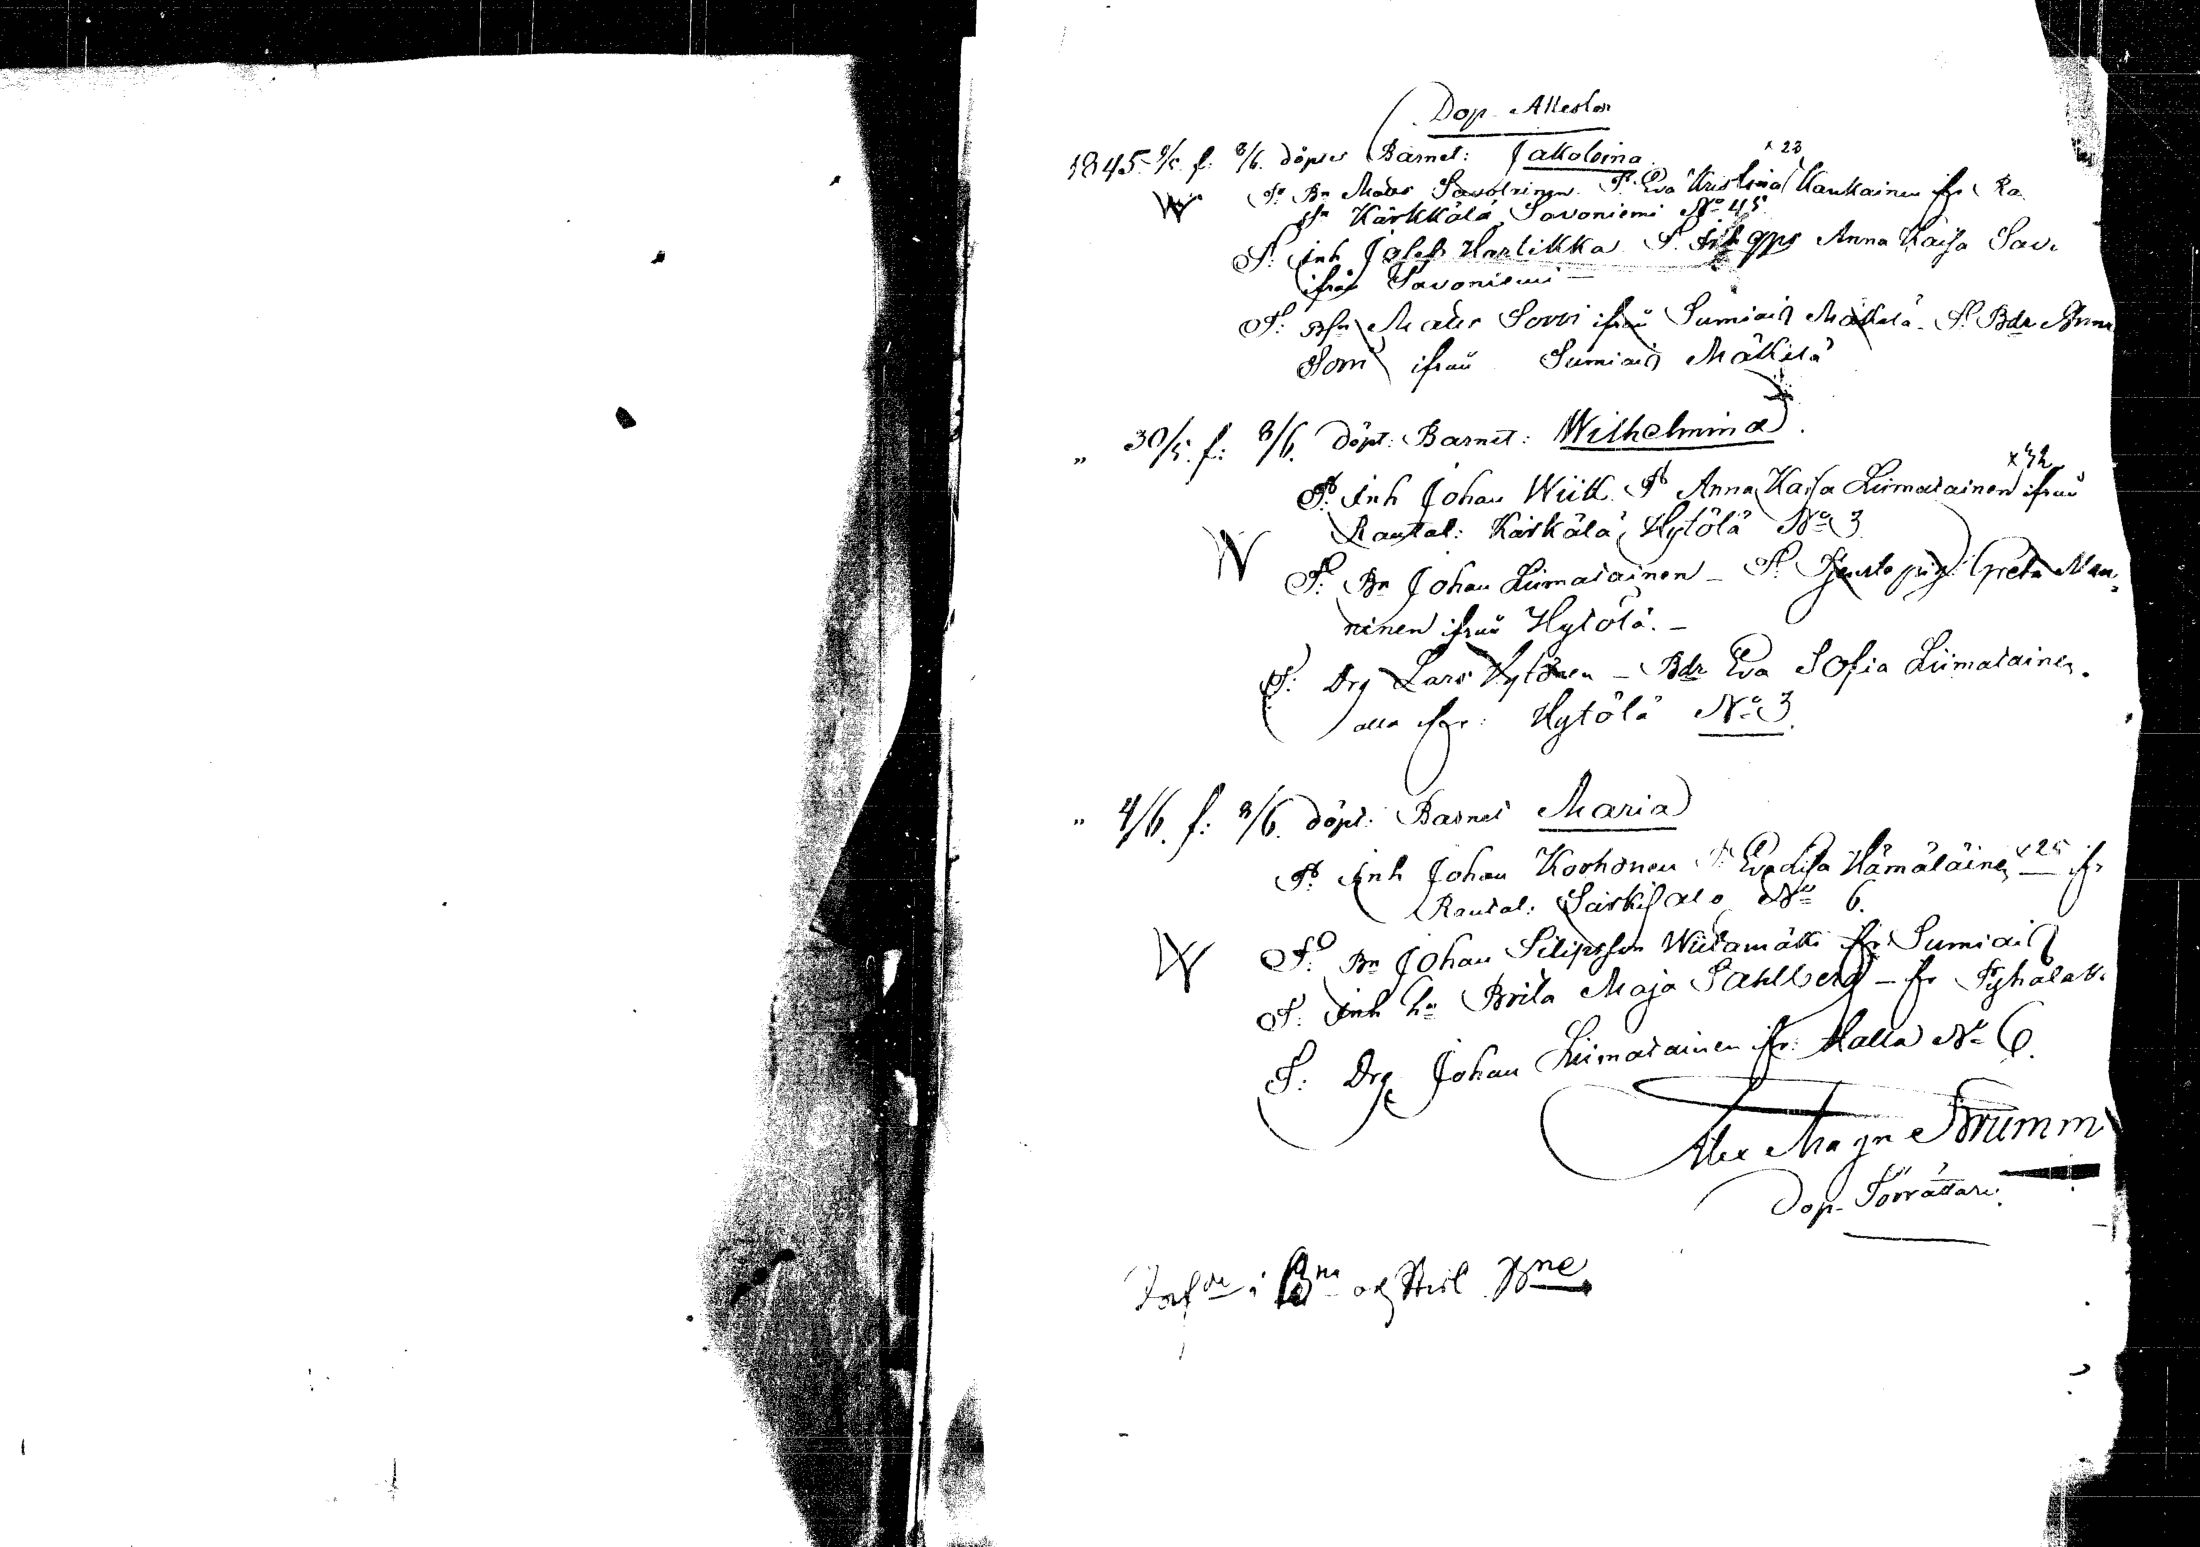 Dop-Attester
1845 9/5 f: 8/6. döptes Barnet: Jakobina
x 23
F: Bn Mats Savolainen F: Eva Kristina Kaukainen ifr Ra
Kärkkälä Savoniemi No 45
F: inh Josef Hartikka F. Anna Kaisa Savo
ifrån Savoniemi —
F: Mats Sorri ifrån Sumiais Mäkelä - F: Bdr Anna
Sorri ifrån Sumiais Mäkelä
„ 30/5. f: 8/6. döpt: Barnet: Wilhelmina.
x 42
F: inh Johan Wiik F: Anna Kaisa Liimatainen ifrån
Rautal: Kärkälä, Hytölä No 3
W F: Bn Johan Liimatainen — F: Greta Man-
ninen ifrån Hytölä. —
F: Drg Lars Hytönen — Bdr Eva Sofia Liimatainen.
alla ifr: Hytölä No 3.
„ 4/6. f: 8/6. döpt: Barnet Maria
F: inh Johan Korhonen F: Eva Lisa Hämäläinen x 25 ifr
Rautal: Särkisalo No 6.
W F: Bn Johan Filipsson Wiitamäki ifr Sumiais
F: inh hu Brita Maja Sahlberg — fr Pyhälak.
F: Drg Johan Liimatainen ifr: Malla No 6.
Alex Magn Brumm
Dop-Förrättare.